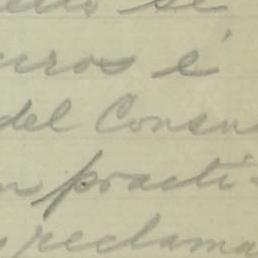 se
uros é
del Consu
n practi-
reclama